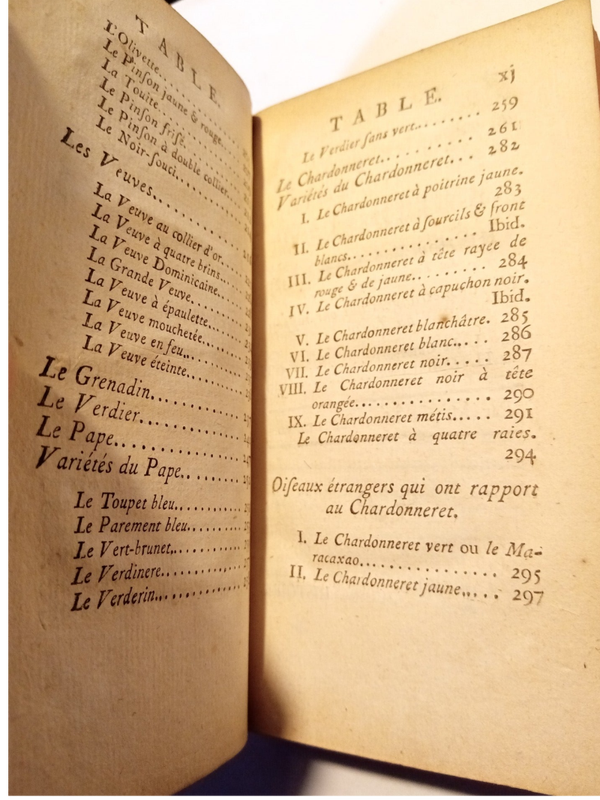 TABLE.
L'Olivette.........
Le Pinſon jaune & rouge.
La Touite..........
Le Pinſon friſé.....
Le Pinſon à double collier.
Le Noir-ſouci......
Les Veuves..........
La Veuve au collier d'or...
La Veuve à quatre brins...
La Veuve Dominicaine...
La Grande Veuve.....
La Veuve à épaulette...
La Veuve mouchetée...
La Veuve en feu....
La Veuve éteinte....
Le Grenadin..........
Le Verdier...........
Le Pape.............
Variétés du Pape.......
Le Toupet bleu.......
Le Parement bleu.....
Le Vert-brunet.......
Le Verdinere........
Le Verderin.........
xj
TABLE.
Le Verdier ſans vert........ 259
Le Chardonneret......... 261
Variétés du Chardonneret... 282
I. Le Chardonneret à poitrine jaune.
283
II. Le Chardonneret à ſourcils & front
blancs............... Ibid.
III. Le Chardonneret à tête rayée de
rouge & de jaune........ 284
IV. Le Chardonneret à capuchon noir.
Ibid.
V. Le Chardonneret blanchâtre. 285
VI. Le Chardonneret blanc.... 286
VII. Le Chardonneret noir..... 287
VIII. Le Chardonneret noir à tête
orangée................ 290
IX. Le Chardonneret métis..... 291
Le Chardonneret à quatre raies.
294
Oiſeaux étrangers qui ont rapport
au Chardonneret.
I. Le Chardonneret vert ou le Ma-
racaxao............... 295
II. Le Chardonneret jaune..... 297